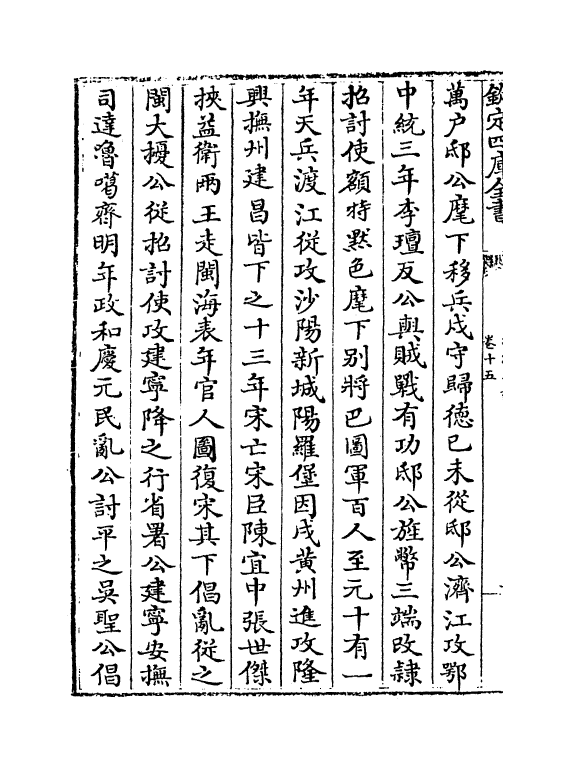 欽定四庫全書
卷十五
萬户邸公麾下移兵戍守歸德己未從邸公濟江攻鄂
中統三年李璮反公與賊戰有功邸公旌幣三端改隷
招討使額特黙色麾下别將巴圖軍百人至元十有一
年天兵渡江從攻沙陽新城陽羅堡因戍黄州進攻隆
興撫州建昌皆下之十三年宋亡宋臣陳宜中張世傑
挾益衛兩王走閩海表年官人圖復宋其下倡亂從之
閩大擾公從招討使攻建寧降之行省署公建寧安撫
司達嚕噶齊明年政和慶元民亂公討平之吳聖公倡